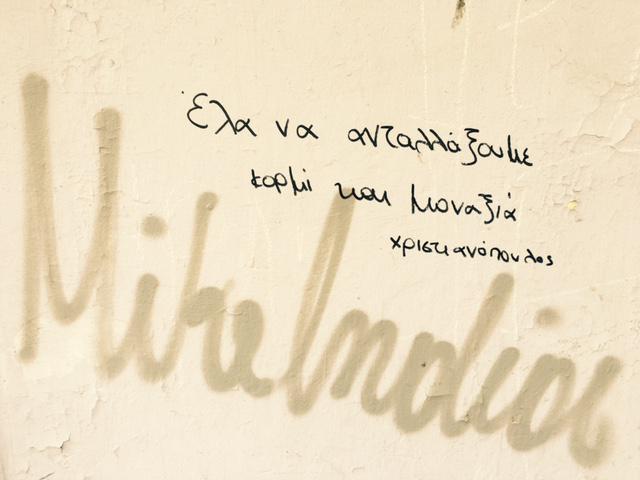 Έλα να ανταλλάξουμε
κορμί και μοναξιά
χριστιανόπουλος